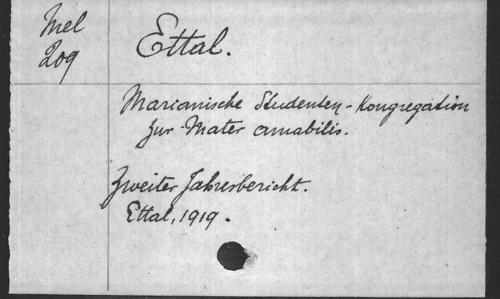 Mel
209
Ettal.
Marianische Studenten-Kongregation
zur Mater amabilis.
Zweiter Jahresbericht.
Ettal, 1919.